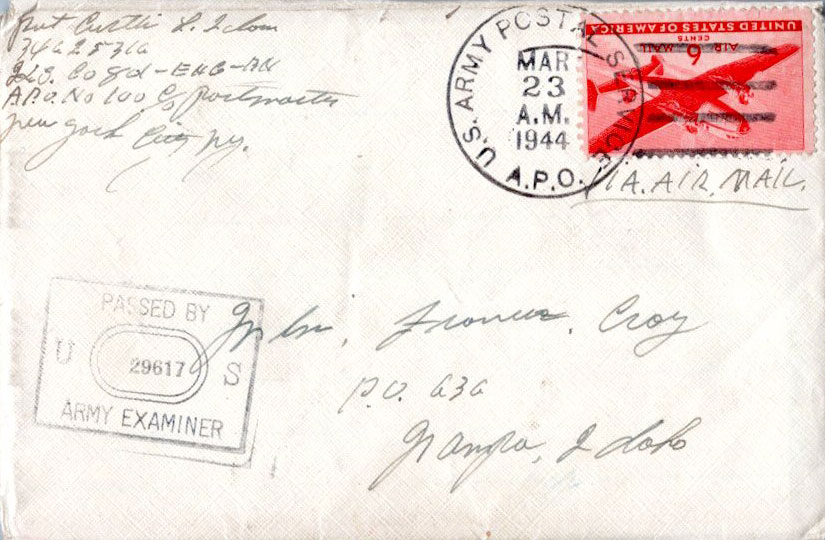 Pvt Curtis L.
34625316
Co
A.P.O. No 100 c/o Postmaster
New York City Ny.
U.S. ARMY POSTAL SERVICE
MAR
23
A.M.
1944
A.P.O.
UNITED STATES OF AMERICA
6
CENTS
AIR MAIL
VIA. AIR. MAIL.
PASSED BY
U 29617 S
ARMY EXAMINER
Frances Croy
P.O. 636
Nampa, Idaho